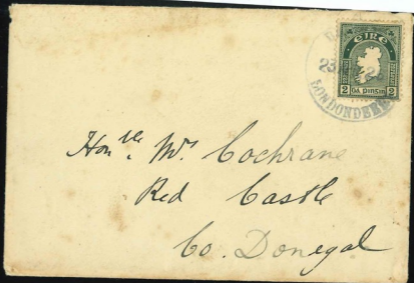 EIRE
2 DÁ PINGIN 2
LONDONDERRY
Honble. Mrs Cochrane
Red Castle
Co. Donegal